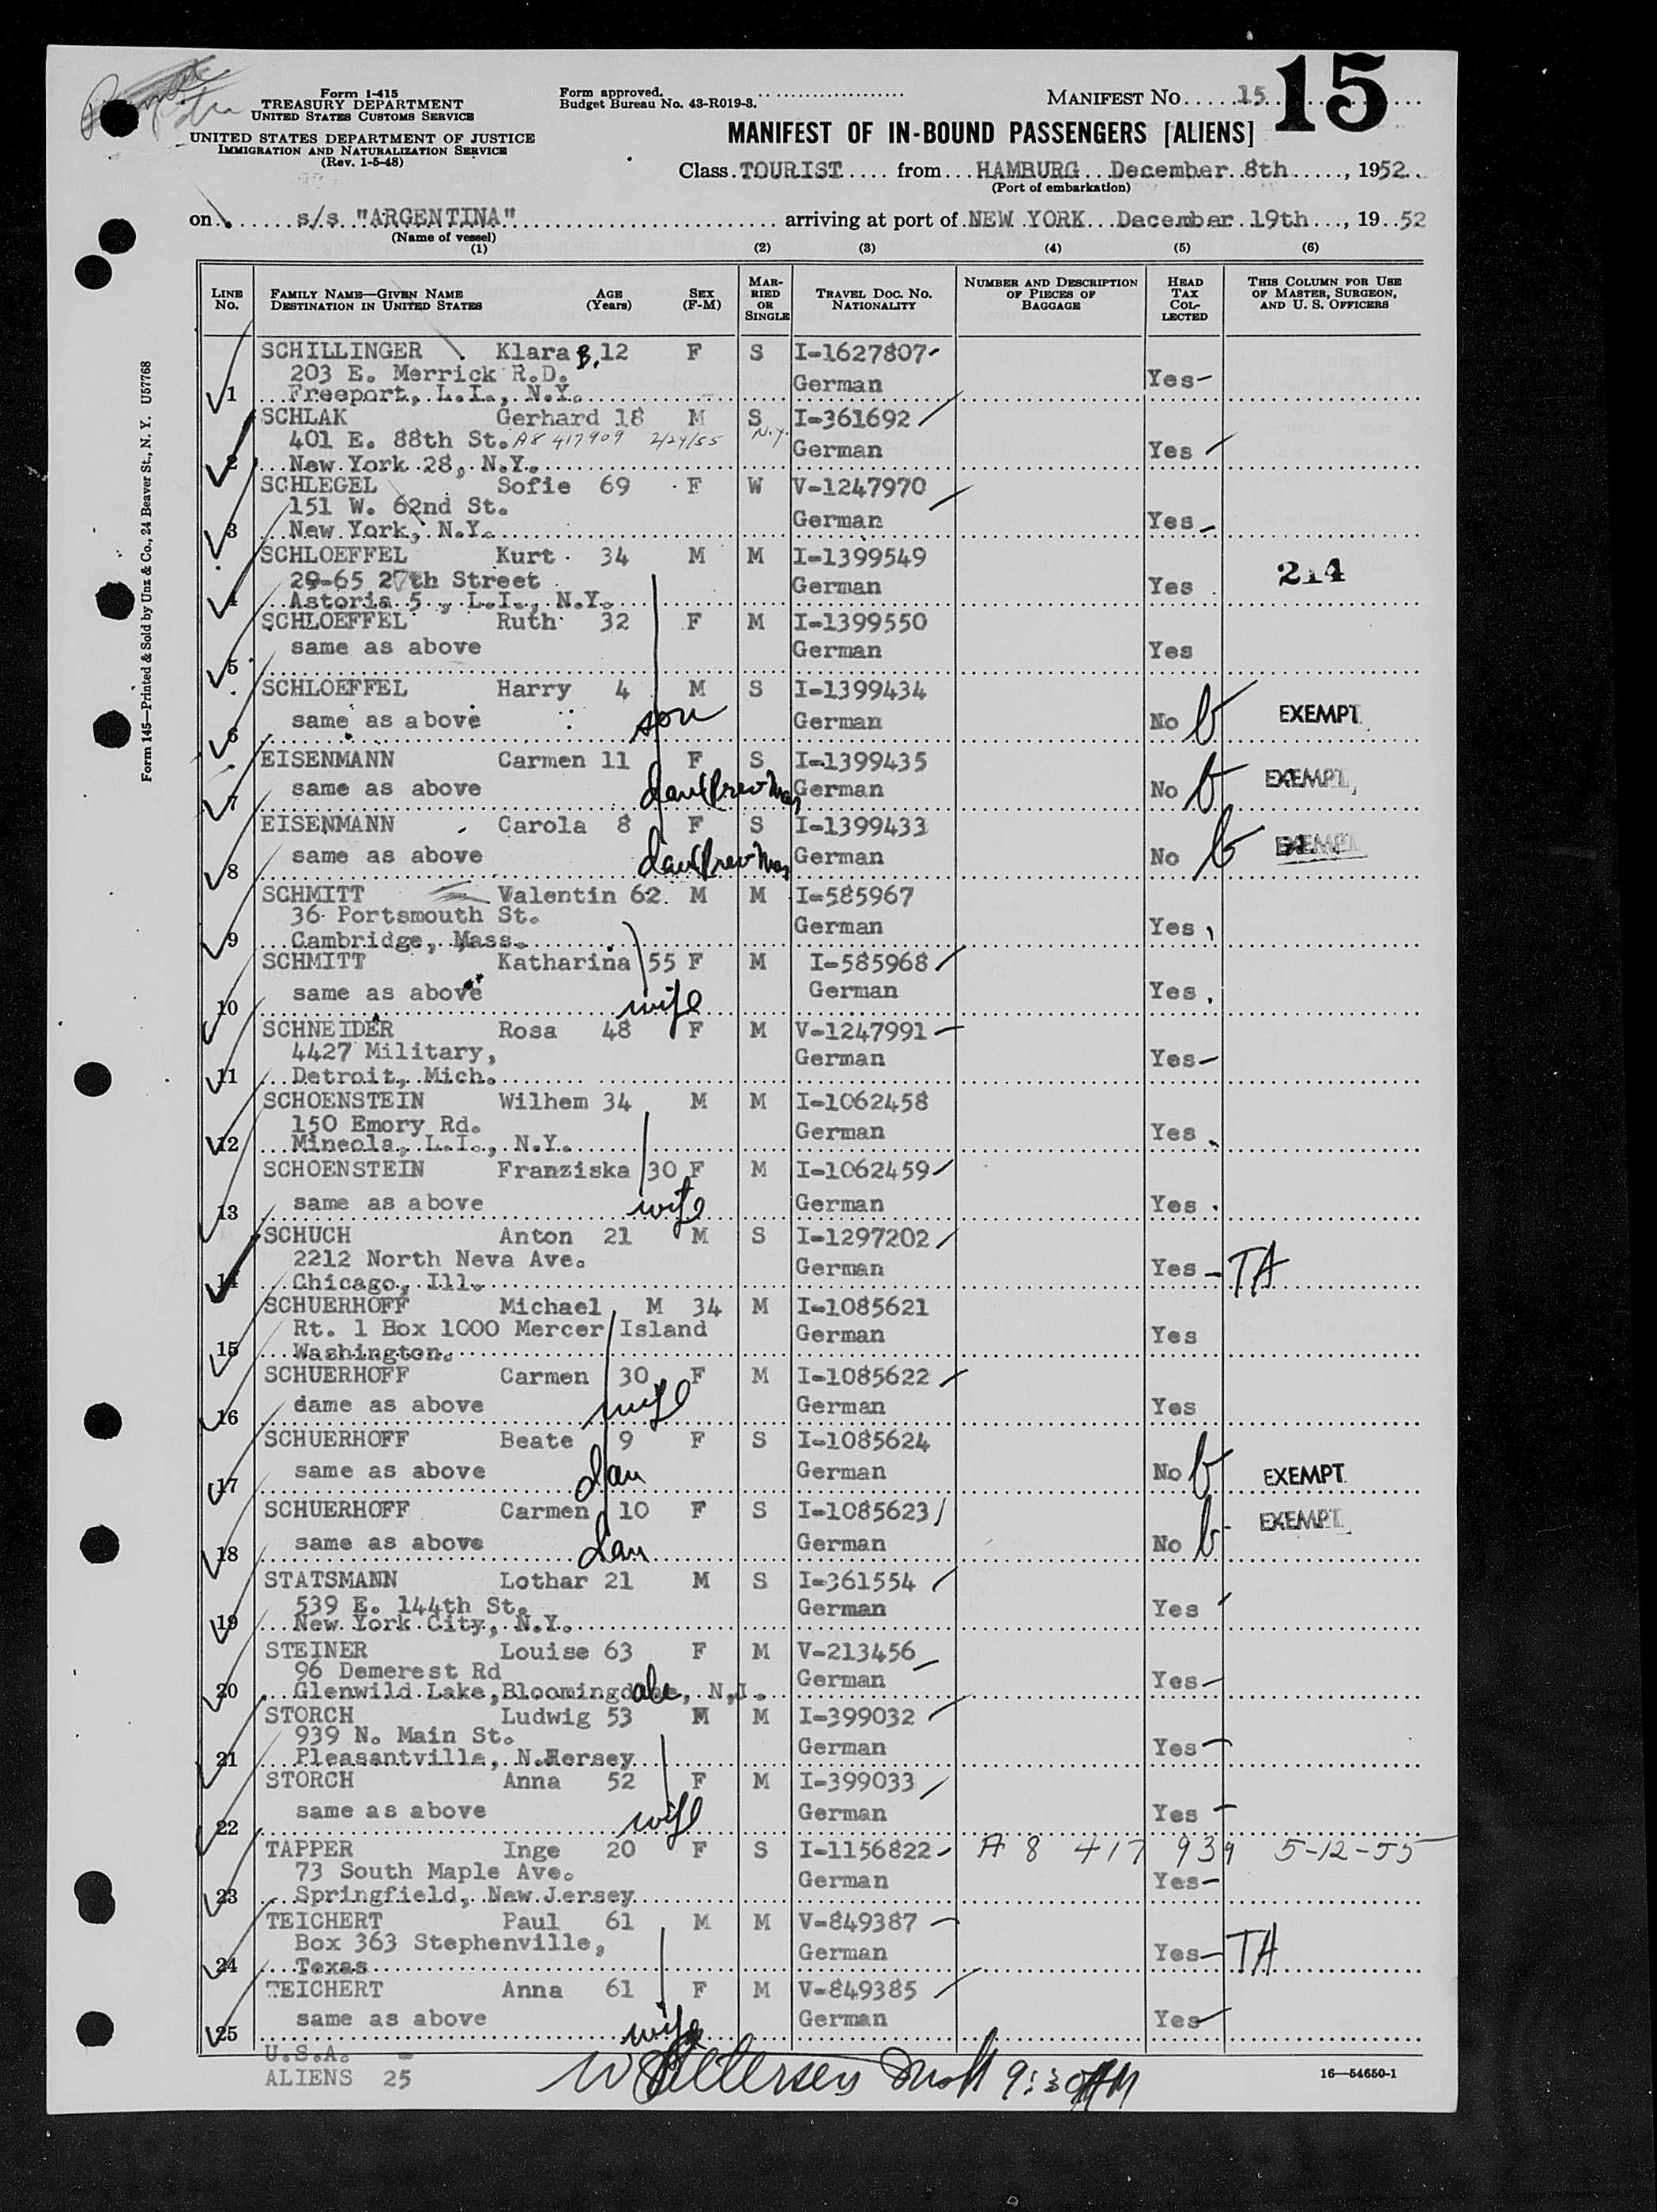 Form I-415
TREASURY DEPARTMENT
UNITED STATES CUSTOMS SERVICE
UNITED STATES DEPARTMENT OF JUSTICE
IMMIGRATION AND NATURALIZATION SERVICE
(Rev. 1-5-48)
Form approved.
Budget Bureau No. 43-R019-3.
MANIFEST NO. 15
15
MANIFEST OF IN-BOUND PASSENGERS [ALIENS]
Class TOURIST from HAMBURG December 8th, 1952
(Port of embarkation)
on s/s "ARGENTINA" arriving at port of NEW YORK December 19th, 1952
(Name of vessel)
(1) (2) (3) (4) (5) (6)
LINE NO. FAMILY NAME—GIVEN NAME DESTINATION IN UNITED STATES AGE (Years) SEX (F-M) MARRIED OR SINGLE TRAVEL DOC. NO. NATIONALITY NUMBER AND DESCRIPTION OF PIECES OF BAGGAGE HEAD TAX COLLECTED THIS COLUMN FOR USE OF MASTER, SURGEON, AND U. S. OFFICERS
SCHILLINGER Klara B. 12 F S I-1627807
203 E. Merrick R.D. German Yes
1 Freeport, L.I., N.Y.
SCHLAK Gerhard 18 M S I-361692
401 E. 88th St. A8 417909 2/24/55 N.Y. German Yes
2 New York 28, N.Y.
SCHLEGEL Sofie 69 F W V-1247970
151 W. 62nd St. German Yes
3 New York, N.Y.
SCHLOEFFEL Kurt 34 M M I-1399549
29-65 27th Street German Yes 214
4 Astoria 5, L.I., N.Y.
SCHLOEFFEL Ruth 32 F M I-1399550
same as above German Yes
5
SCHLOEFFEL Harry 4 M S I-1399434
same as above son German No b EXEMPT
6
EISENMANN Carmen 11 F S I-1399435
same as above German No b EXEMPT
7
EISENMANN Carola 8 F S I-1399433
same as above German No b EXEMPT
8
SCHMITT Valentin 62 M M I-585967
36 Portsmouth St. German Yes
9 Cambridge, Mass.
SCHMITT Katharina 55 F M I-585968
same as above wife German Yes
10
SCHNEIDER Rosa 48 F M V-1247991
4427 Military, German Yes
11 Detroit, Mich.
SCHOENSTEIN Wilhem 34 M M I-1062458
150 Emory Rd. German Yes
12 Mineola, L.I., N.Y.
SCHOENSTEIN Franziska 30 F M I-1062459
same as above wife German Yes
13
SCHUCH Anton 21 M S I-1297202
2212 North Neva Ave. German Yes TA
14 Chicago, Ill.
SCHUERHOFF Michael M 34 M I-1085621
Rt. 1 Box 1000 Mercer Island German Yes
15 Washington.
SCHUERHOFF Carmen 30 F M I-1085622
dame as above wife German Yes
16
SCHUERHOFF Beate 9 F S I-1085624
same as above dau German No b EXEMPT
17
SCHUERHOFF Carmen 10 F S I-1085623
same as above dau German No b EXEMPT
18
STATSMANN Lothar 21 M S I-361554
539 E. 144th St. German Yes
19 New York City, N.Y.
STEINER Louise 63 F M V-213456
96 Demerest Rd German Yes
20 Glenwild Lake, Bloomingdale, N.J.
STORCH Ludwig 53 M M I-399032
939 N. Main St. German Yes
21 Pleasantville, N.Jersey
STORCH Anna 52 F M I-399033
same as above wife German Yes
22
TAPPER Inge 20 F S I-1156822 A 8 417 939 5-12-55
73 South Maple Ave. German Yes
23 Springfield, New Jersey
TEICHERT Paul 61 M M V-849387
Box 363 Stephenville, German Yes TA
24 Texas
TEICHERT Anna 61 F M V-849385
same as above wife German Yes
25
U.S.A. -
ALIENS 25
9:30 AM
16—54650-1
Form 145—Printed & Sold by Unz & Co., 24 Beaver St., N. Y. U57768